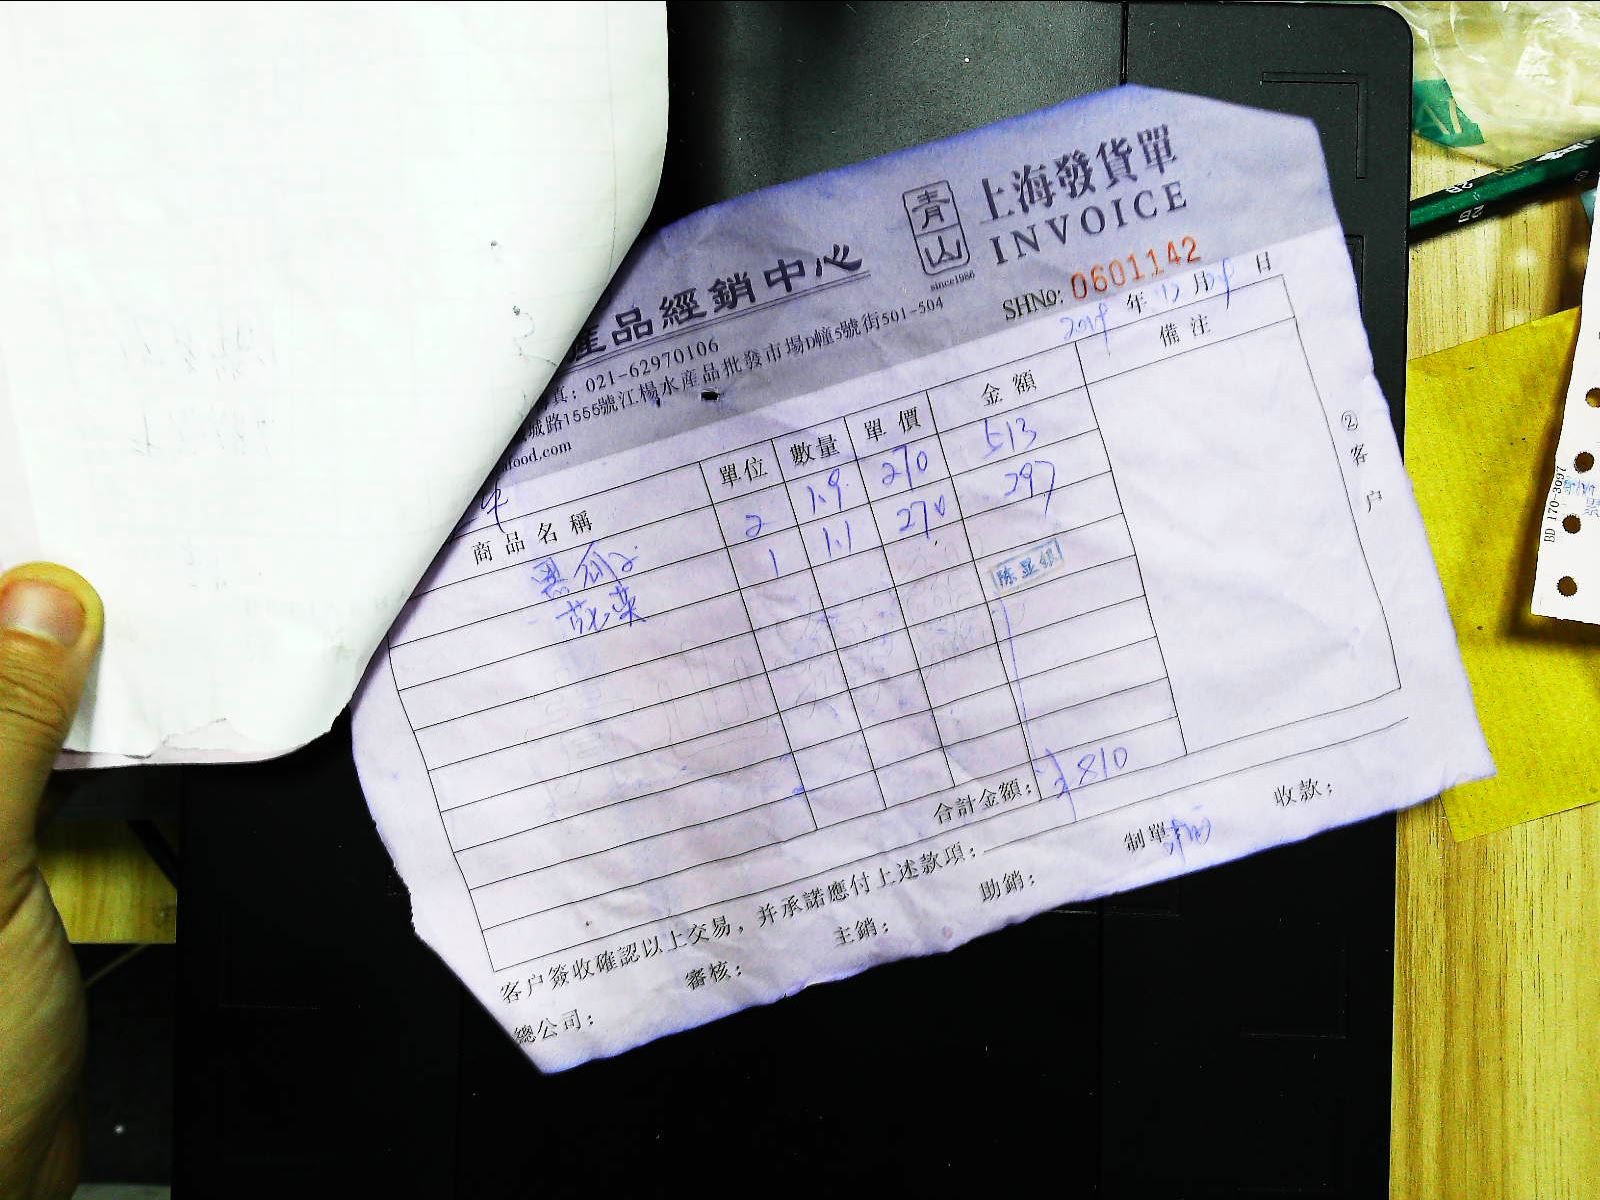 青山
since1986
上海發貨單
INVOICE
SHNo: 0601142
產品經銷中心
真: 021-62970106
城路1555號江楊水產品批發市場D幢5號街501-504
food.com
2019 年 12 月 29 日
商品名稱 單位 數量 單價 金額 備注
2 1.9 270 513
1 1.1 270 297
陈显银
合計金額: 810
②客户
客户簽收確認以上交易，并承諾應付上述款項:
總公司: 審核: 主銷: 助銷: 制單 收款:
BD 170-3097